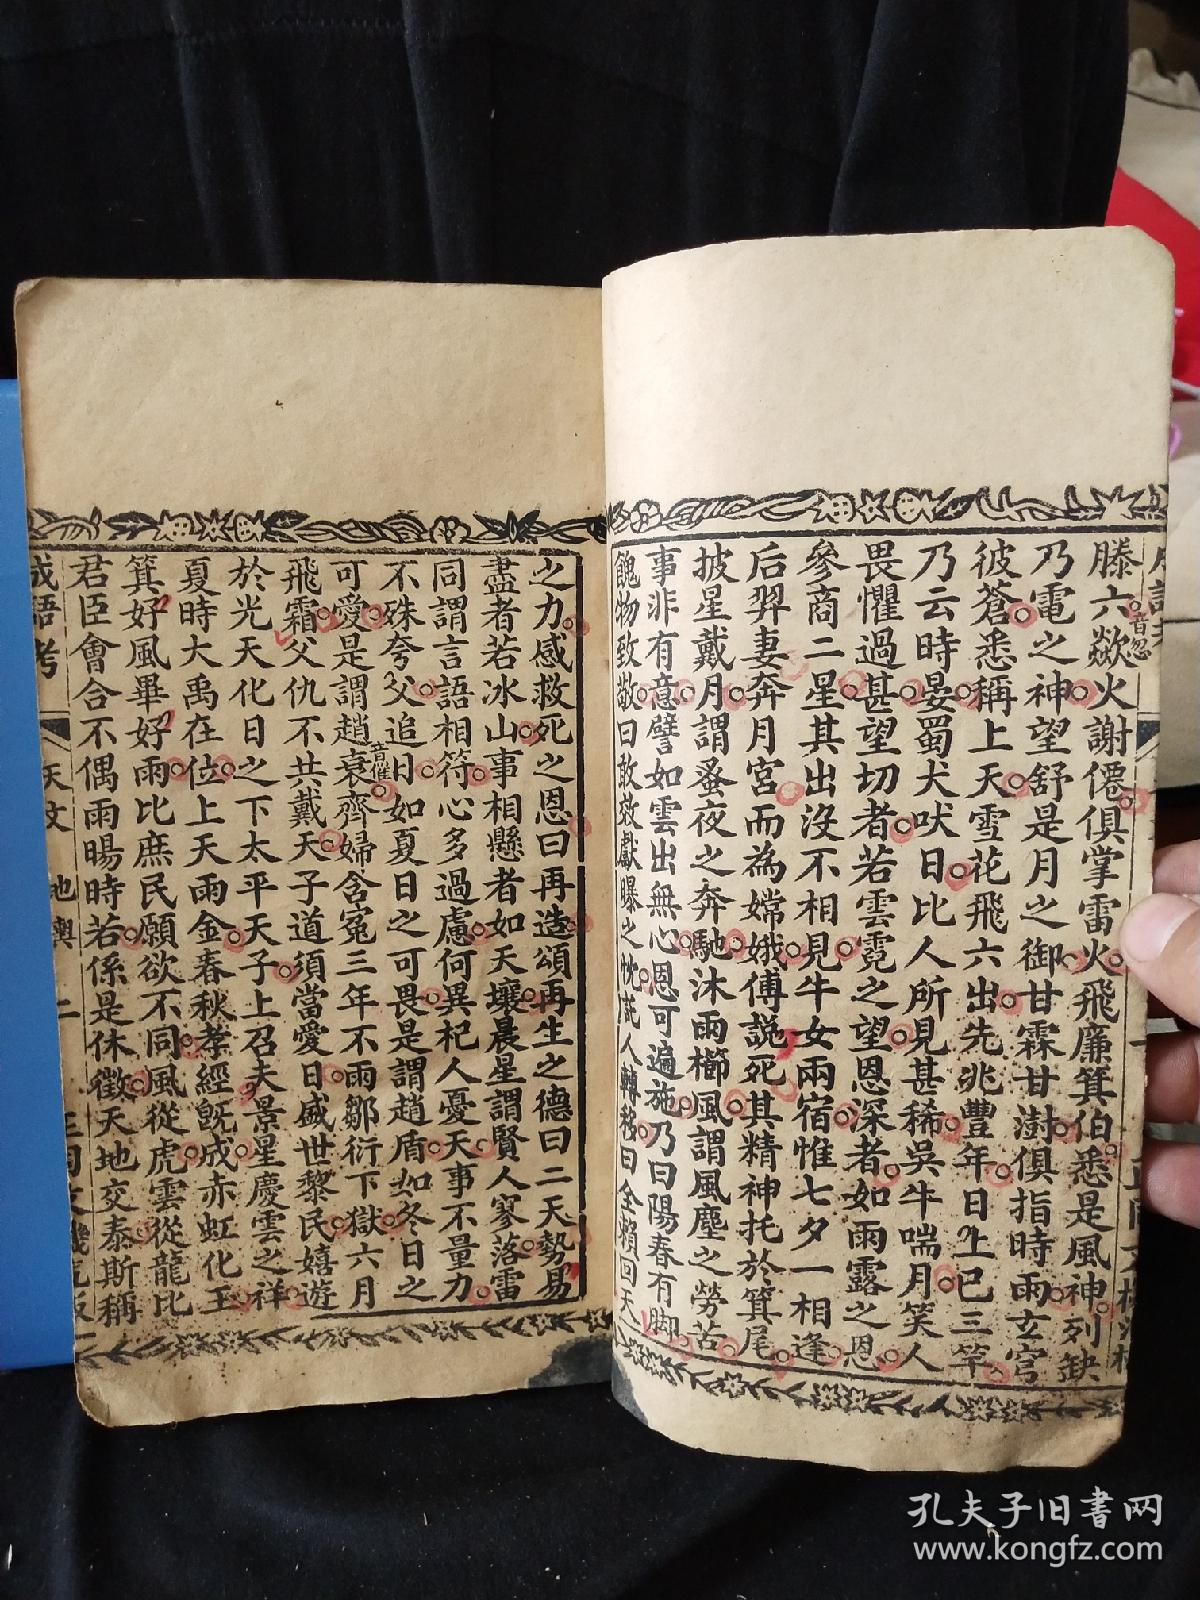 滕六歘音忽火謝僊俱掌雷火飛廉箕伯悉是風神列缺
乃電之神望舒是月之御甘霖甘澍俱指時雨玄穹
彼蒼悉稱上天雪花飛六出先兆豐年日上已三竿
乃云時晏蜀犬吠日比人所見甚稀吳牛喘月笑人
畏懼過甚望切者若雲霓之望恩深者如雨露之恩
參商二星其出沒不相見牛女兩宿惟七夕一相逢
后羿妻奔月宮而為嫦娥傅說死其精神托於箕尾
披星戴月謂蚤夜之奔馳沐雨櫛風謂風塵之勞苦
事非有意譬如雲出無心恩可遍施乃曰陽春有脚
餽物致敬曰敢效獻曝之忱託人轉移曰全賴回天
之力感救死之恩曰再造頌再生之德曰二天勢易
盡者若冰山事相懸者如天壤晨星謂賢人寥落雷
同謂言語相符心多過慮何異杞人憂天事不量力
不殊夸父追日如夏日之可畏是謂趙盾如冬日之
可愛是謂趙衰音催齊婦含冤三年不雨鄒衍下獄六月
飛霜父仇不共戴天子道須當愛日盛世黎民嬉遊
於光天化日之下太平天子上召夫景星慶雲之祥
夏時大禹在位上天雨金春秋孝經既成赤虹化玉
箕好風畢好雨比庶民願欲不同風從虎雲從龍比
君臣會合不偶雨暘時若係是休徵天地交泰斯稱
成語考 天文 地輿 二
孔夫子旧书网
www.kongfz.com